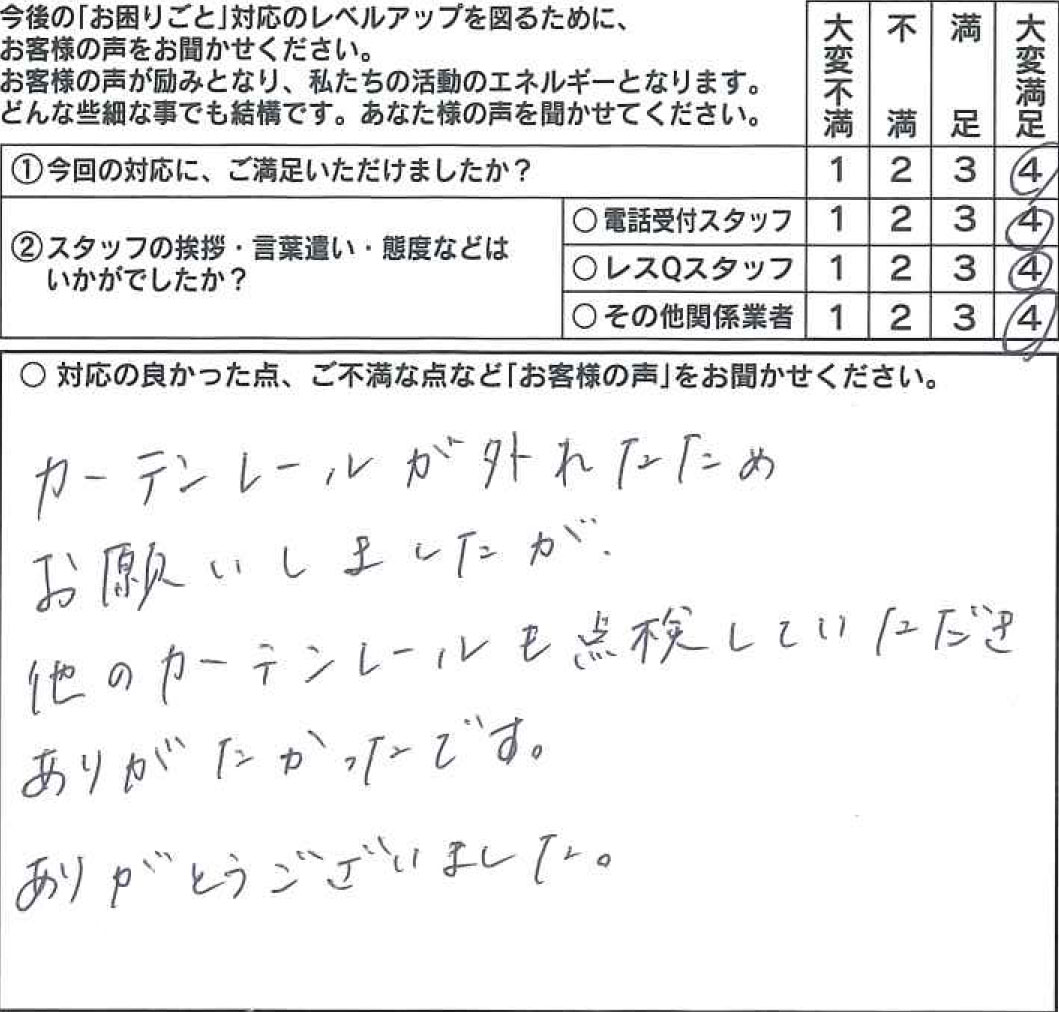 今後の「お困りごと」対応のレベルアップを図るために、
お客様の声をお聞かせください。
お客様の声が励みとなり、私たちの活動のエネルギーとなります。
どんな些細な事でも結構です。あなた様の声を聞かせてください。
大変不満 不満 満足 大変満足
①今回の対応に、ご満足いただけましたか？ 1 2 3 4
②スタッフの挨拶・言葉遣い・態度などは
いかがでしたか？
○電話受付スタッフ 1 2 3 4
○レスQスタッフ 1 2 3 4
○その他関係業者 1 2 3 4
○ 対応の良かった点、ご不満な点など「お客様の声」をお聞かせください。
カーテンレールが外れたため
お願いしましたが、
他のカーテンレールも点検していただき
ありがたかったです。
ありがとうございました。